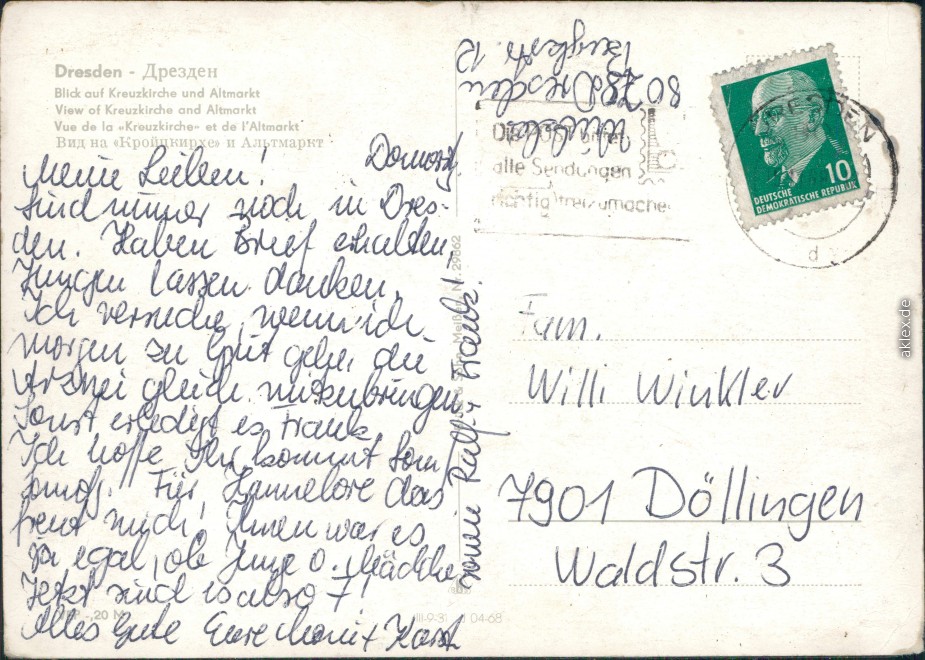 Dresden - Дрезден
Blick auf Kreuzkirche und Altmarkt
View of Kreuzkirche and Altmarkt
Vue de la «Kreuzkirche» et de l'Altmarkt
Вид на «Кройцкирхе» и Альтмаркт
Meine Lieben!
Sind immer noch in Dres-
den. Haben Brief erhalten,
Jungen lassen danken.
Ich versuche, wenn ich
morgen zu gehe, die
Arznei gleich mitzubringen,
Sonst erledigt es Frank.
Ich hoffe Ihr kommt
Für Hannelore das
freut mich! Ihnen war es
ja egal, ob Junge o. Mädchen
Jetzt sind es also 7!
Alles Gute Eure u. Karst
sowie Ralf u. Frank!
-,20 M
III-9-31 04-68
Nr. 29862
8028 Dresden
12
alle Sendungen
richtig freizumachen
DRESDEN
d
10
DEUTSCHE
DEMOKRATISCHE REPUBLIK
Fam.
Willi Winkler
7901 Döllingen
Waldstr. 3
aklex.de